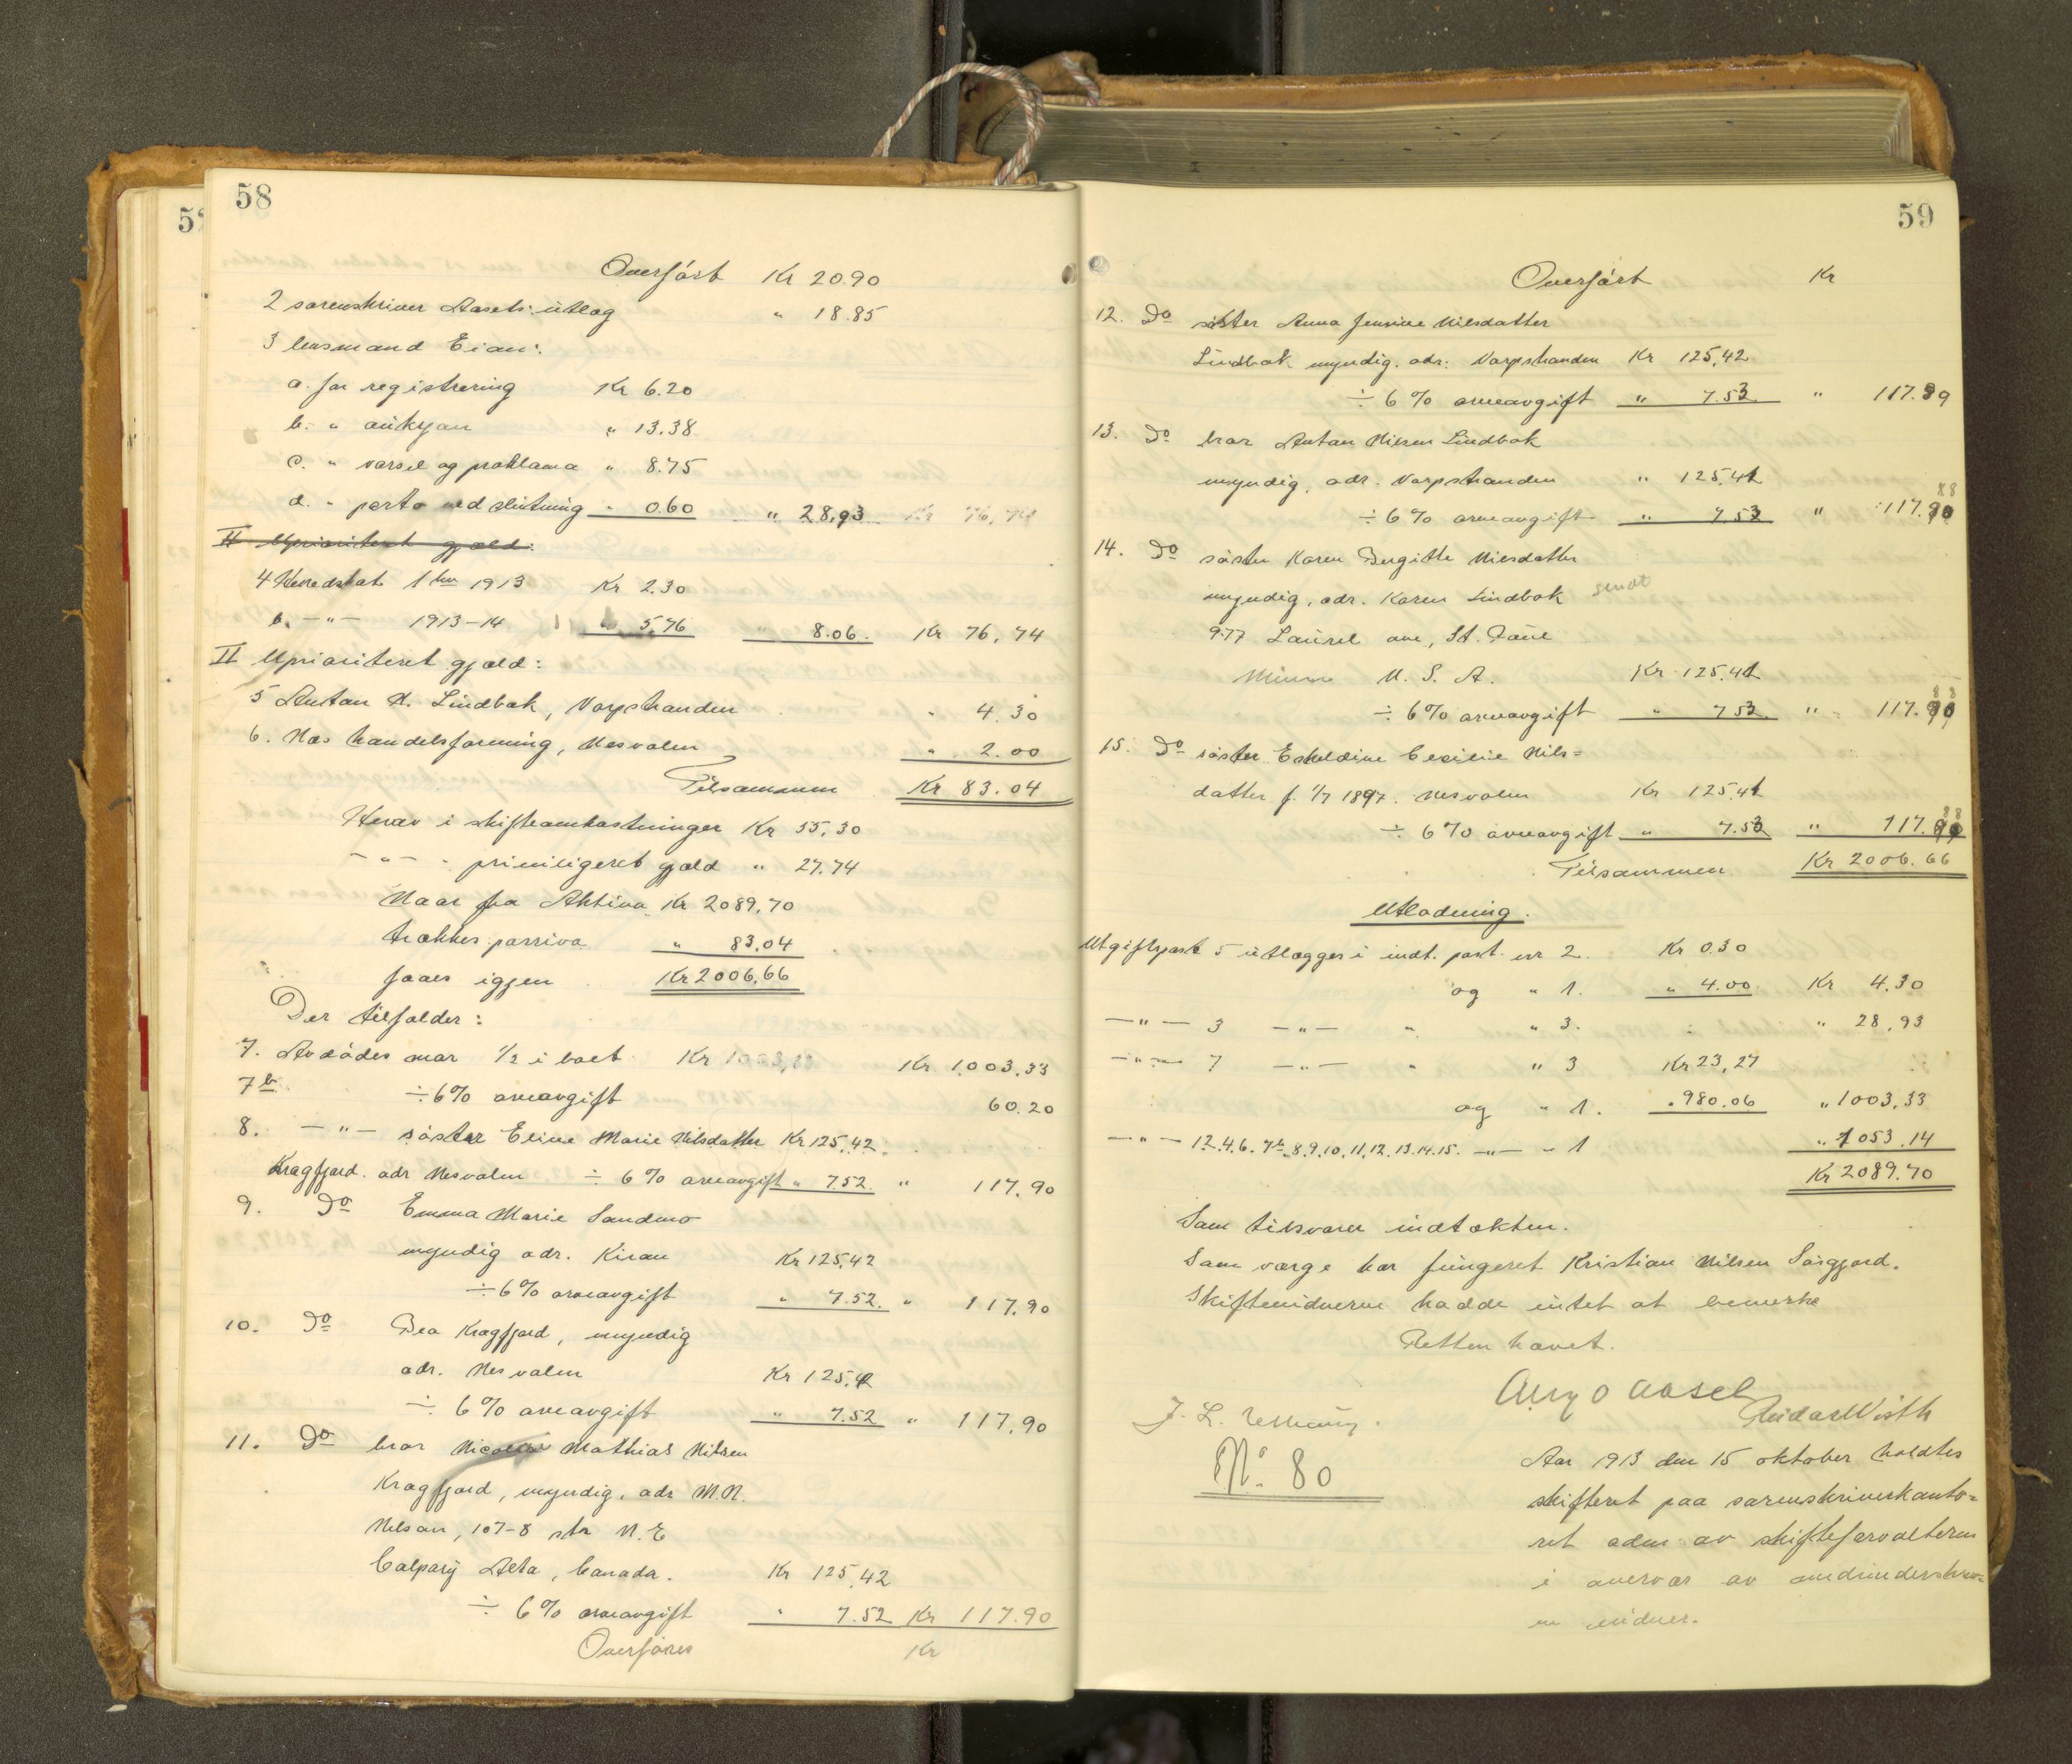 58
Overført Kr 20.90
2 sorenskriver Aasels utlæg " 18.85
3 lensmand Eian:
a. for registrering Kr 6.20
b. " auksjon " 13.38
c. " varsel og proklama " 8.75
d. " porto ved slutning " 0.60 " 28,93 Kr 76,74
II Uprioritert gjæld:
4 Heredskat 1 1913 Kr 2.30
b. -"- 1913-14 " 5,76 " 8.06. Kr 76,74
II Uprioriteret gjæld:
5 Anton N. Lindbak, Varpstranden " 4.30
6. Næs handelsforening, Nesvalen " 2.00
Tilsammen Kr 83.04
Herav i skifteomkostninger Kr 55,30
-"- - priviligeret gjæld " 27.74
Naar fra Aktiva Kr 2089,70
trækkes passiva " 83,04
faaes igjen Kr 2006,66
Der tilfalder:
7. Avdødes mor 1/2 i boet Kr 1003,33 Kr 1,003,33
7b. ÷ 6% arveavgift 60.20
8. -"- søster Eline Marie Nilsdatter Kr 125,42
Kragfjord. adr Nesvalen ÷ 6% arveavgift " 7.52. " 117,90
9. Do Emma Marie Sandmo
myndig adr. Kiran Kr 125,42
÷ 6% arveavgift " 7.52. " 117,90
10. Do Bea Kragfjord, myndig
adr. Nesvalen Kr 125,42
÷ 6% arveavgift " 7.52 " 117,90
11. Do bror Nicolai Mathias Nilsen
Kragfjord, myndig, adr M.N.
Nelson, 107-8 str N.E
Calpary Alta, Canada. Kr 125,42
÷ 6% arveavgift " 7.52 Kr 117.90
Overføres Kr
59
Overført Kr
12. Do søster Anna Jensine Nilsdatter
Lindbak myndig. adr: Varpstranden Kr 125,42
÷ 6% arveavgift " 7.53 " 117.89
13. Do bror Anton Nilsen Lindbak
myndig, adr. Varpstranden " 125,41
88
÷ 6% arveavgift " 7.53 " 117.90
14. Do søster Karen Bergitte Nilsdatter
myndig, adr. Karen Lindbak sendt
977 Laurel ave, St. Paul
Minn U. S. A. Kr 125,41
88
÷ 6% arveavgift " 7.53 " 117.90
15. Do søster Eskeldine Cecilie Nils=
datter f. 1/7 1897. Nesvalen Kr 125,41
88
÷ 6% arveavgift " 7.53 " 117.90
Tilsammen Kr 2006.66
Utlodning.
Utgiftspost 5 utlægges i indt. post nr 2. Kr 0.30
og " 1. " 4.00 Kr 4.30
-"- 3 -"- " " 3. " 28,93
-"- 7 -"- " " 3 Kr 23,27
og " 1. " 980.06 " 1003,33
-"- 1 2.4.6. 7b.8.9.10,11,12.13.14.15. -"- " 1 " 1053.14
Kr 2089.70
Som tilsvarer indtækten.
Som værge har fungeret Kristian Nilsen Sørgjord.
Skiftevidnerne hadde intet at bemerke
Retten hævet.
Aug O Aasel
J. L. Reidar Wisth
No. 80
Aar 1913 den 15 oktober holdtes
skifteret paa sorenskriverkonto=
ret adm av skifteforvalteren
i overvær av medunderskrev=
ne vidner.